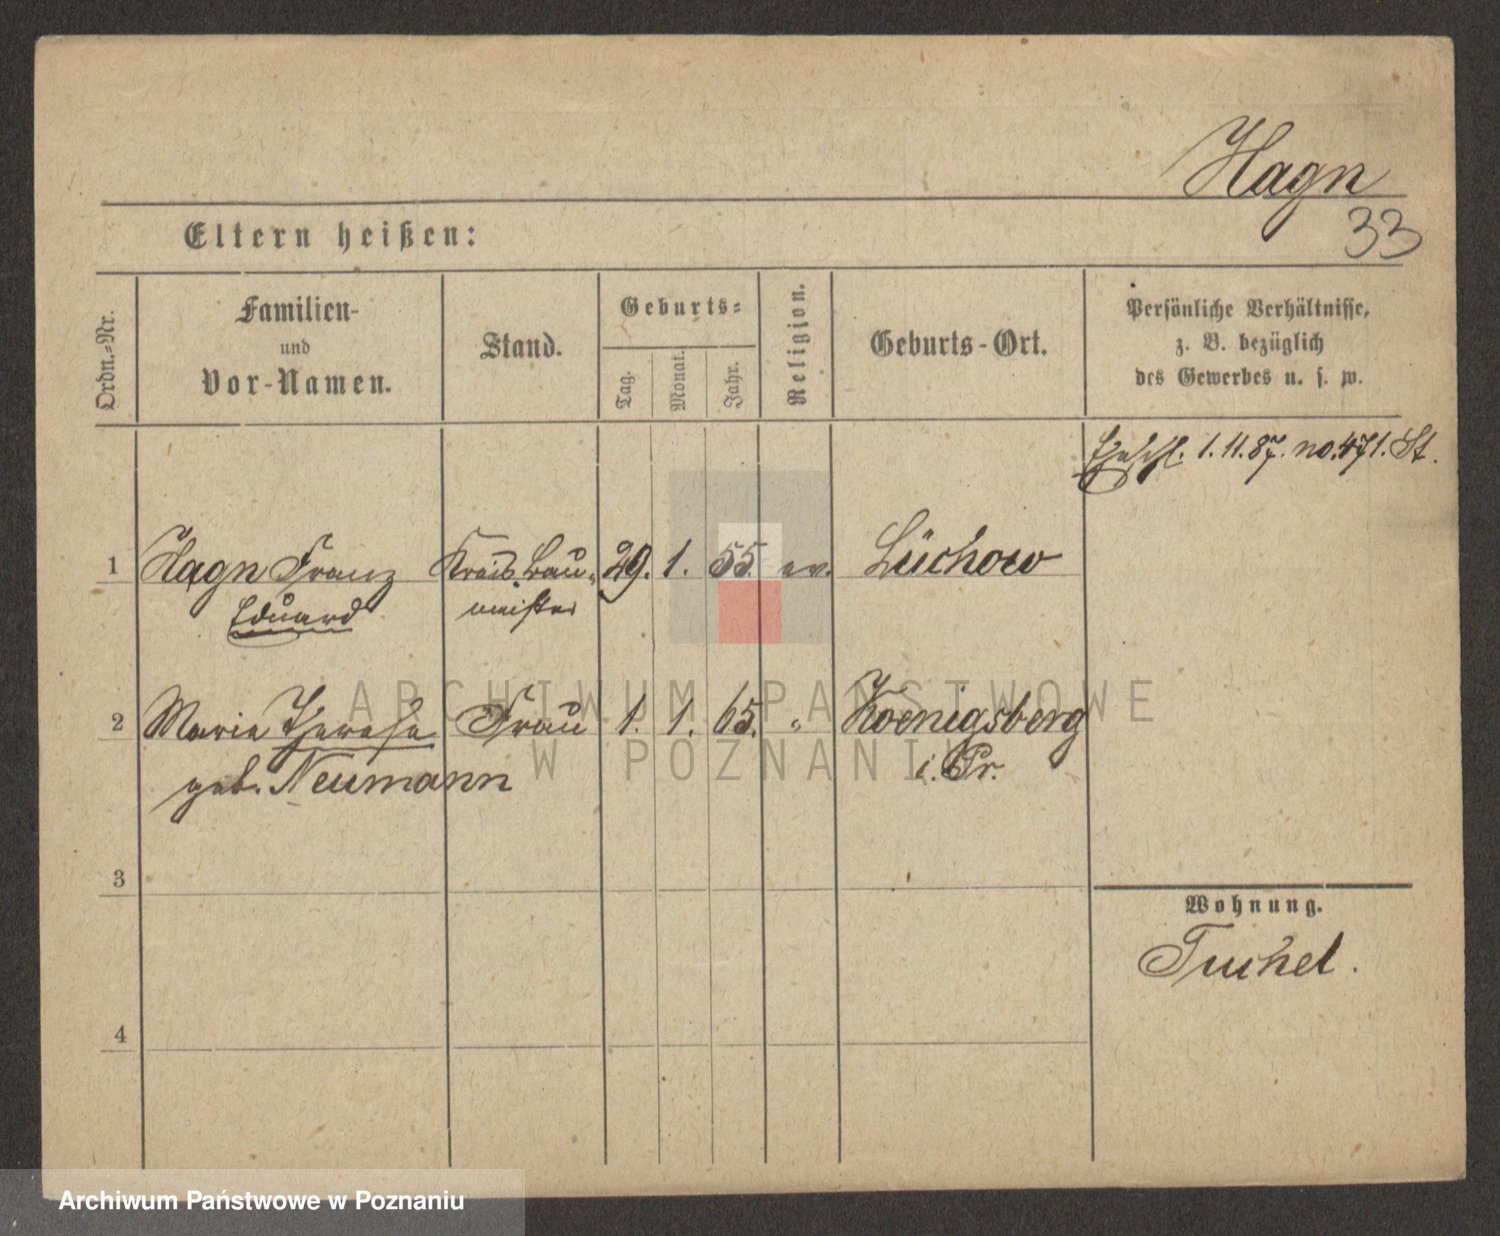 Hagn
33
Eltern heißen:
Ordn.-Nr.
Familien-
und
Vor-Namen.
Stand.
Geburts-
Tag.
Monat.
Jahr.
Religion.
Geburts-Ort.
Persönliche Verhältnisse,
z. B. bezüglich
des Gewerbes u. s. w.
Eheschl. 1.11.87. no.471. St.
1 Hagn Franz Kreis Bau- 29. 1. 55. ev. Lüchow
Eduard meister
2 Marie Therese Frau 1. 1. 65. " Koenigsberg
geb. Neumann i. Pr.
3
Wohnung.
Tuchel.
4
ARCHIWUM PAŃSTWOWE
W POZNANIU
Archiwum Państwowe w Poznaniu